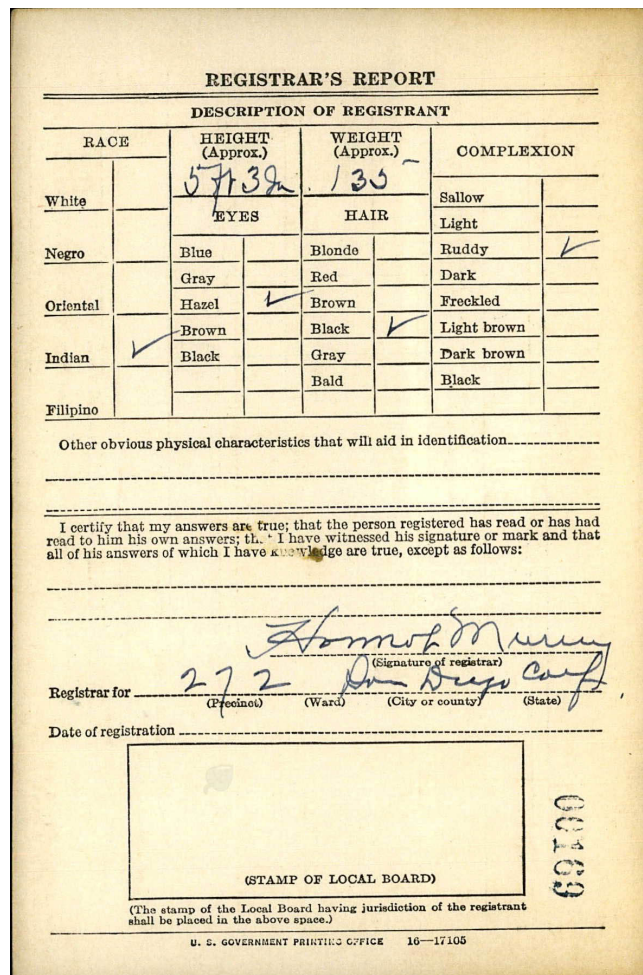 REGISTRAR'S REPORT
DESCRIPTION OF REGISTRANT
RACE
HEIGHT
(Approx.)
WEIGHT
(Approx.)
COMPLEXION
5 ft 3 In. 135
White
Sallow
EYES HAIR
Light
Negro Blue Blonde Ruddy ✓
Gray Red Dark
Oriental Hazel ✓ Brown Freckled
Brown Black ✓ Light brown
Indian ✓ Black Gray Dark brown
Bald Black
Filipino
Other obvious physical characteristics that will aid in identification
I certify that my answers are true; that the person registered has read or has had
read to him his own answers; that I have witnessed his signature or mark and that
all of his answers of which I have knowledge are true, except as follows:
Murray
(Signature of registrar)
Registrar for 272 San Diego Calif
(Precinct) (Ward) (City or county) (State)
Date of registration
(STAMP OF LOCAL BOARD)
(The stamp of the Local Board having jurisdiction of the registrant
shall be placed in the above space.)
U. S. GOVERNMENT PRINTING OFFICE 16—17105